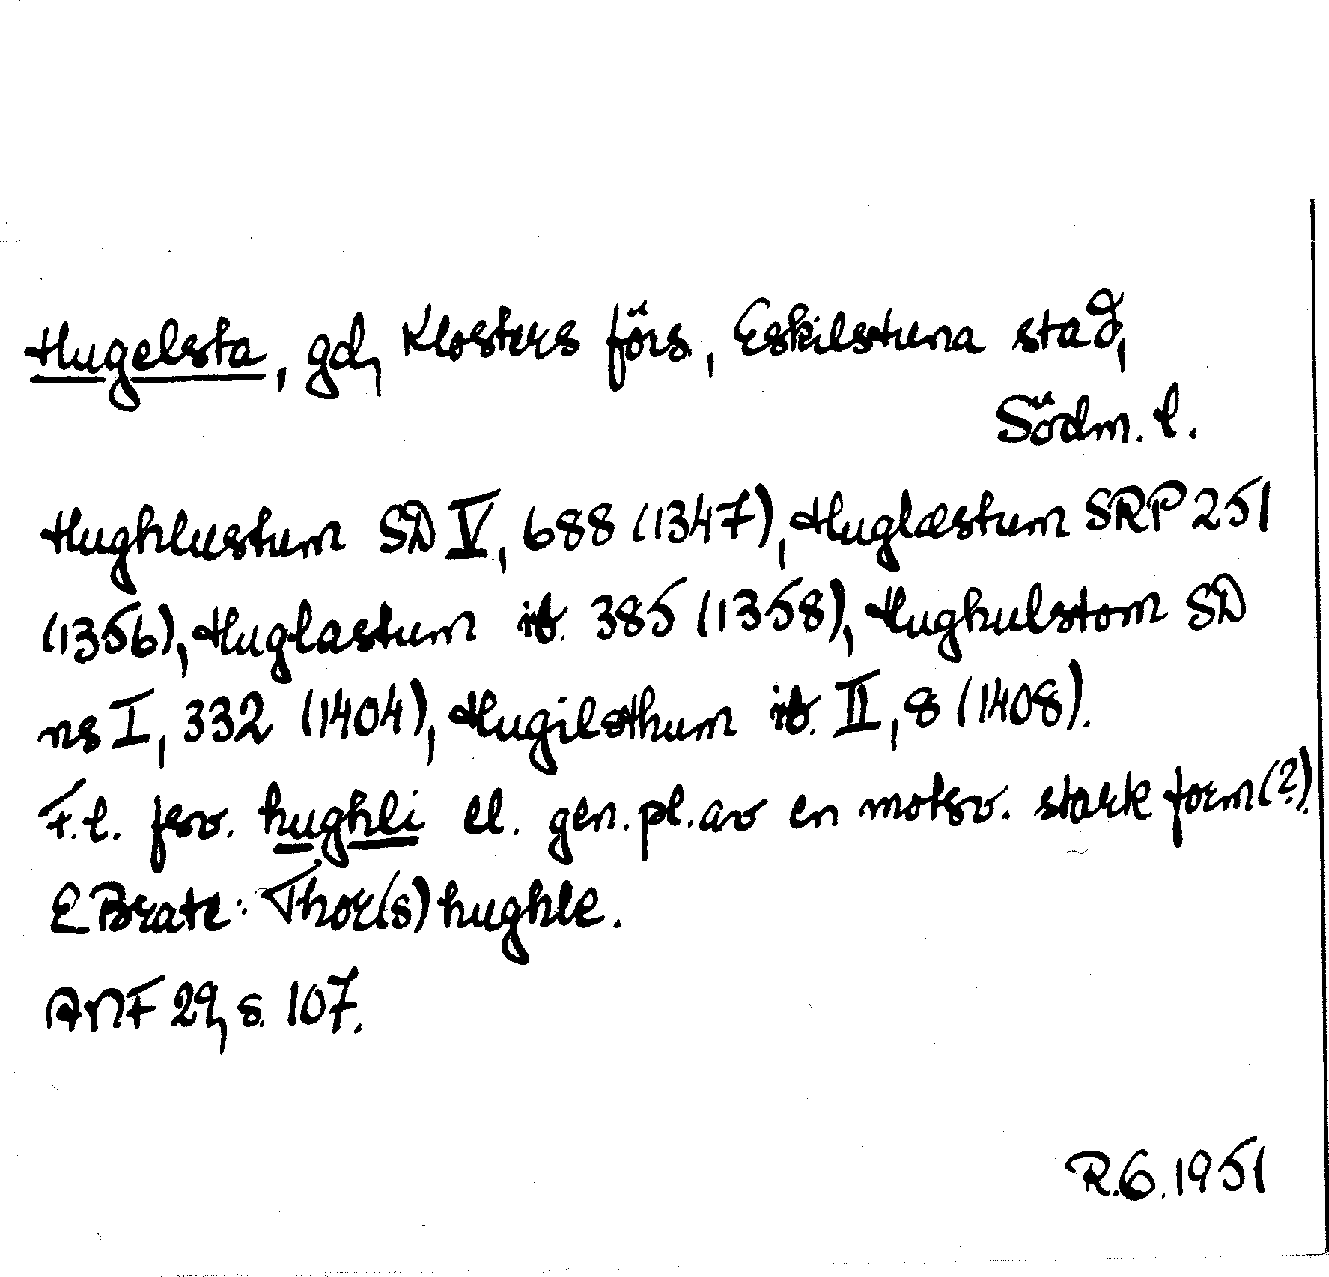 Hugelsta, gd, Klosters förs, Eskilstuna stad,
Södm. l.
Hughlustum SD V, 688 (1347), Huglæstum SRP 251
(1356), Huglastum ib. 385 (1358), Hughulstom SD
ns I, 332 (1404), Hugilsthum ib. II, 8 (1408).
F.l. fsv. hughli el. gen. pl. av en motsv. stark form (?).
E Brate: Thor(s)hughle.
ANF 29, s. 107.
R.G. 1951